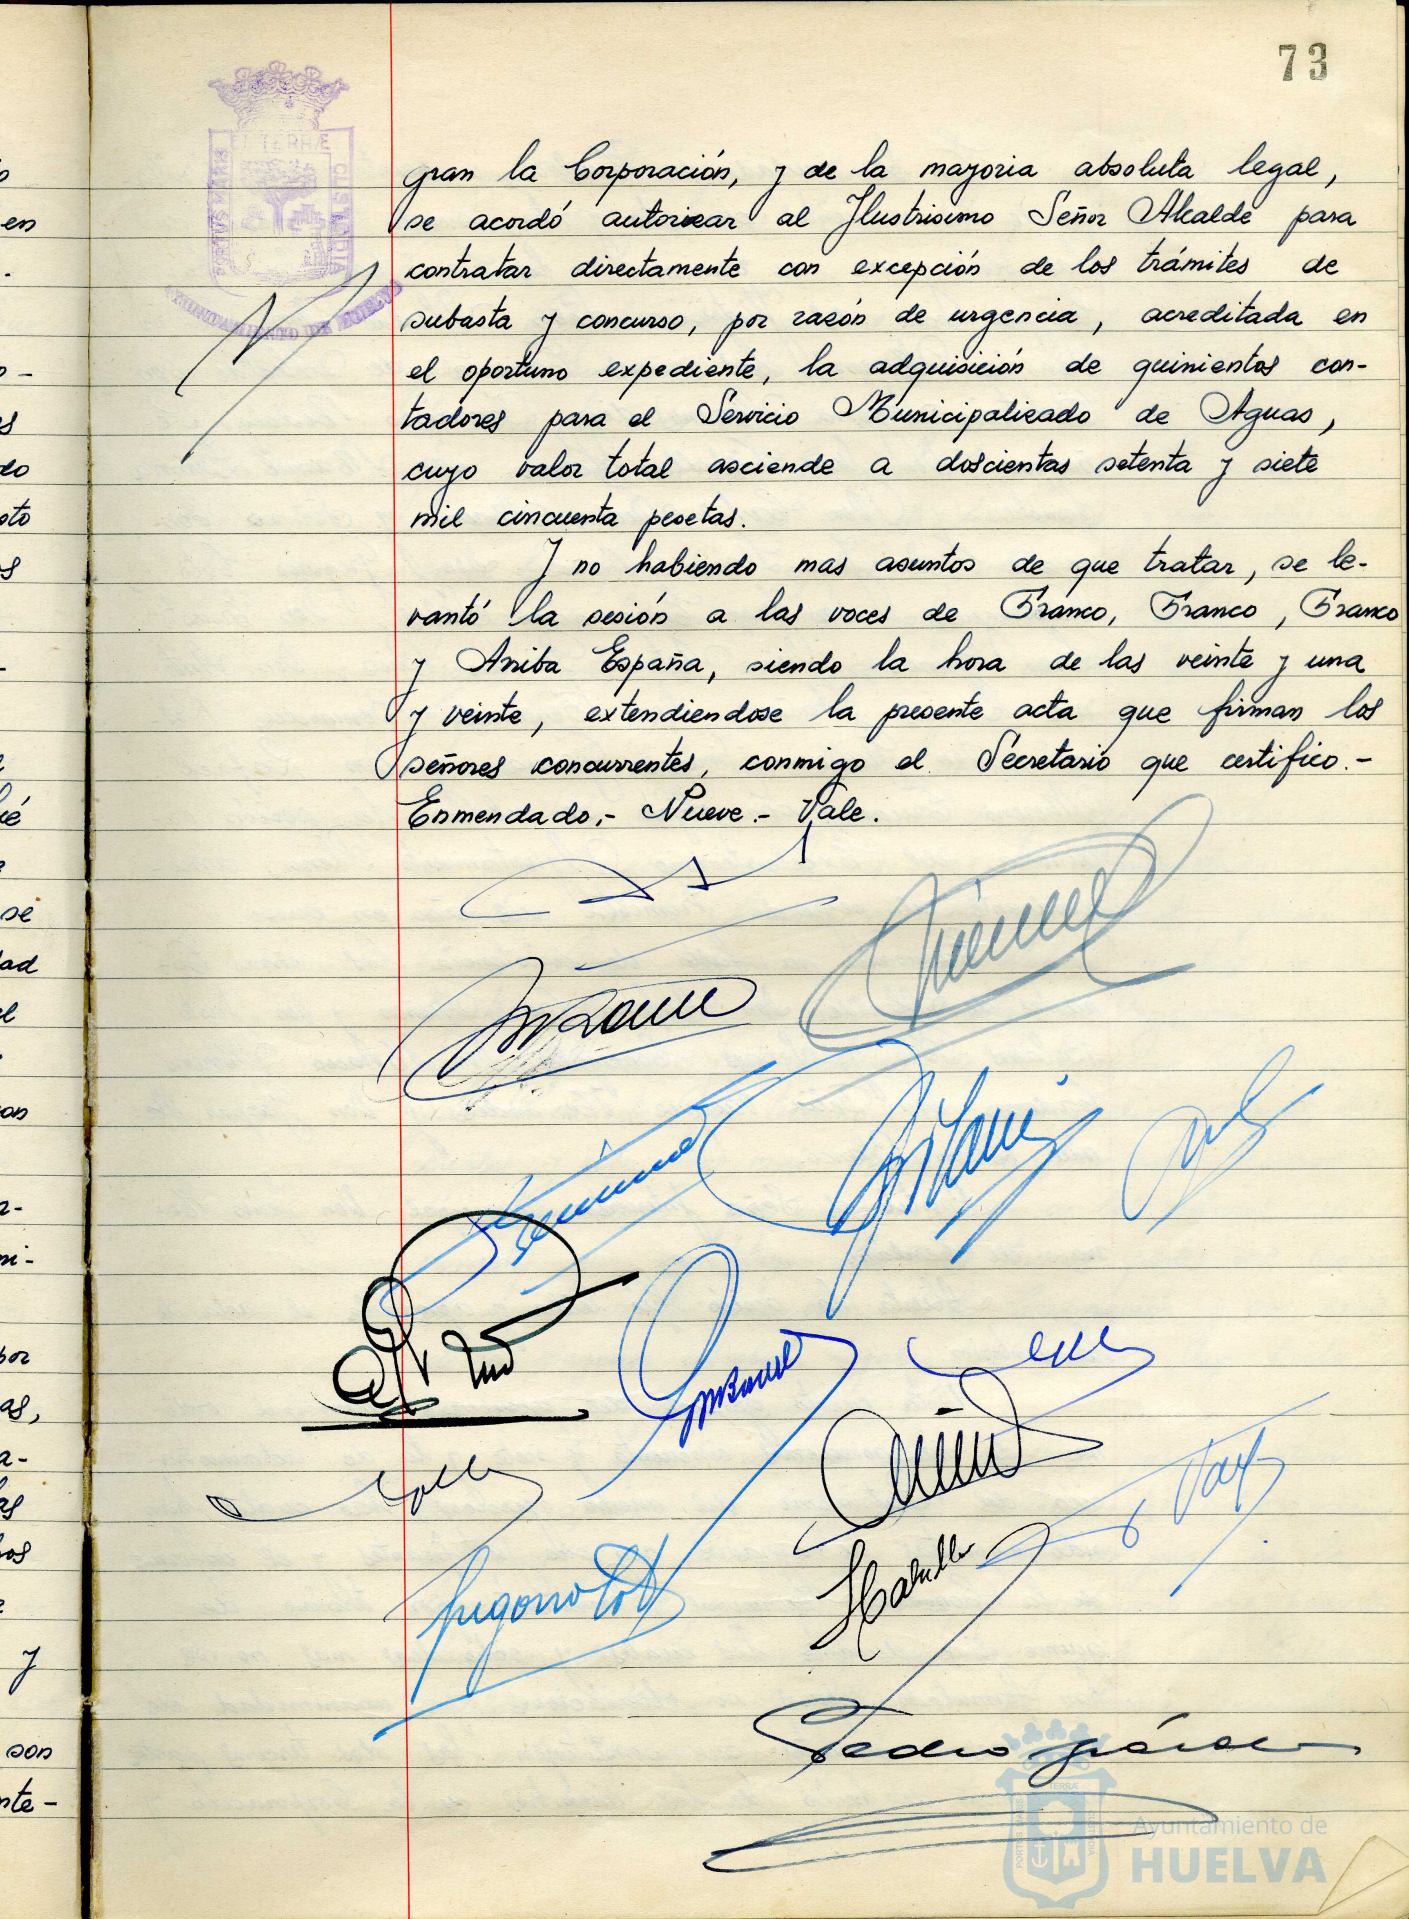 73
gran la Corporación, y de la mayoria absoluta legal,
se acordó autorizar al Ilustrisimo Señor Alcalde para
contratar directamente con excepción de los trámites de
subasta y concurso, por razón de urgencia, acreditada en
el oportuno expediente, la adquisición de quinientos con-
tadores para el Servicio Municipalizado de Aguas,
cuyo valor total asciende a doscientas setenta y siete
mil cincuenta pesetas.
Y no habiendo mas asuntos de que tratar, se le-
vantó la sesión a las voces de Franco, Franco, Franco
y Arriba España, siendo la hora de las veinte y una
y veinte, extendiendose la presente acta que firman los
señores concurrentes, conmigo el Secretario que certifico.-
Enmendado.- Nueve.- Vale.
PORTUS MARIS ET TERRÆ CUSTODIA
AYUNTAMIENTO DE HUELVA
Pedro
Ayuntamiento de
HUELVA